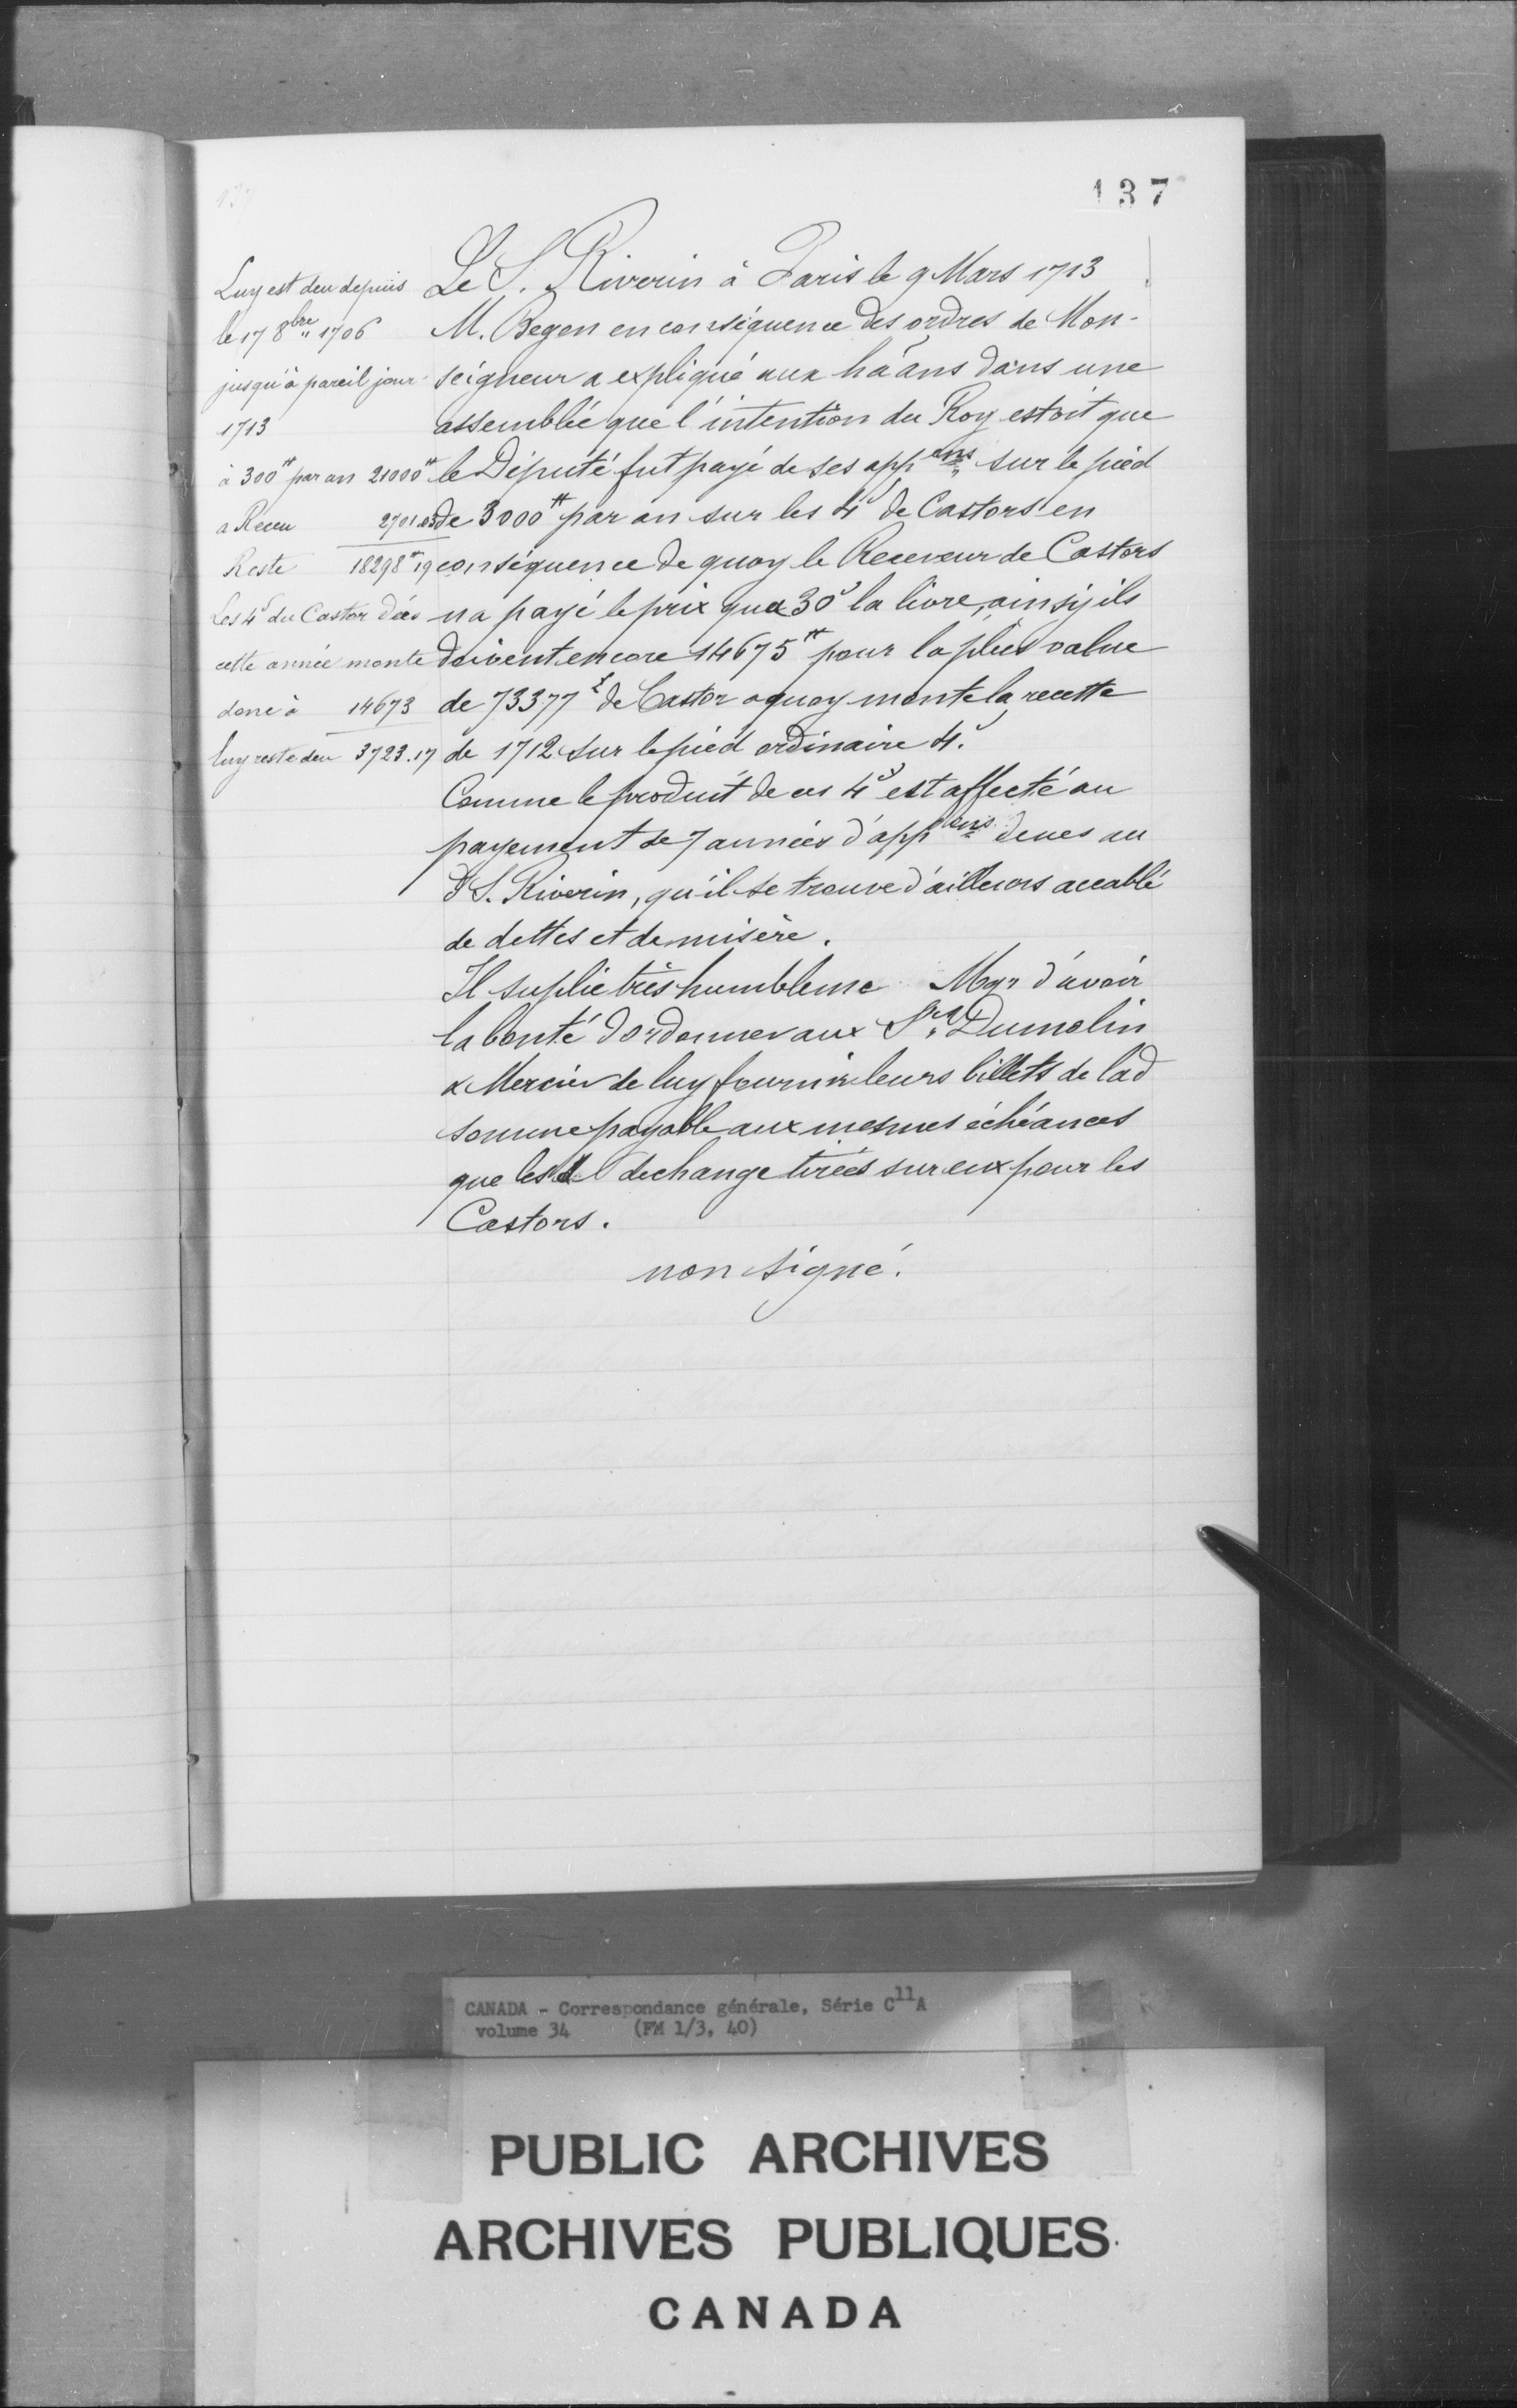 137
Luy est deu depuis
le 17 8bre 1706
jusqu'à pareil jour
1713
à 300# par an 21000#
a Receu 2701.03
Reste 18298# 19
Les 4s du Castor dües
cette année monte
donc à 14673
luy reste deu 3723.17
Le S. Riverin à Paris le 9 Mars 1713
M. Begon en conséquence des ordres de Mon-
seigneur a expliqué aux háans dans une
assemblée que l'intention du Roy estoit que
le Député fut payé de ses appens sur le pied
de 3000# par an sur les 4s de Castors en
conséquence de quoy le Receveur de Castors
n a payé le prix qu a 30s la livre, ainsy ils
doivent encore 14675# pour la plus value
de 73377 l de Castor a quoy monte la recette
de 1712 sur le pied ordinaire 4s
Comme le produit de ces 4s est affecté au
payement de 7 années d'appens deues au
d S. Riverin, qu'il se trouve d'ailleurs accablé
de dettes et de misère.
Il suplie très humbleme Mgr d'avoir
la bonté dordonner aux Srs Dumolin
& Mercier de luy fournir leurs billets de lad
somme payable aux mesmes échéances
que les l dechange tirées sur eux pour les
Castors.
non signé.
CANADA - Correspondance générale, Série C11A
volume 34 (FM 1/3, 40)
PUBLIC ARCHIVES
ARCHIVES PUBLIQUES
CANADA